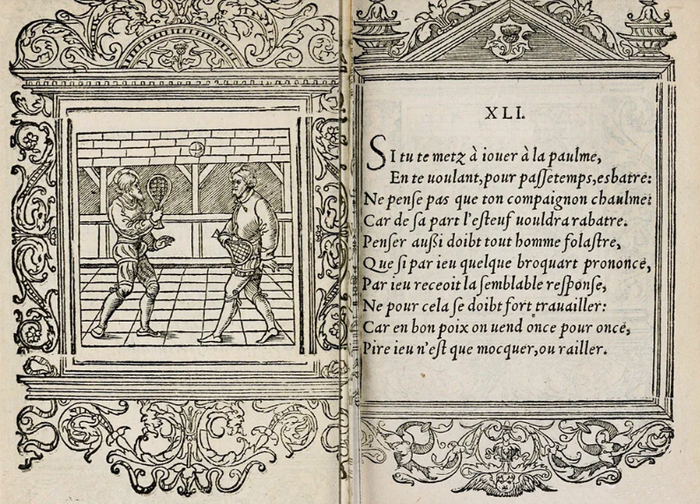 XLI.
SI tu te metz à iouer à la paulme,
En te uoulant, pour passetemps, esbatre:
Ne pense pas que ton compaignon chaulme:
Car de sa part l'esteuf uouldra rabatre.
Penser aussi doibt tout homme folastre,
Que si par ieu quelque broquart prononce,
Par ieu receoit la semblable response,
Ne pour cela se doibt fort trauailler:
Car en bon poix on uend once pour once,
Pire ieu n'est que mocquer, ou railler.